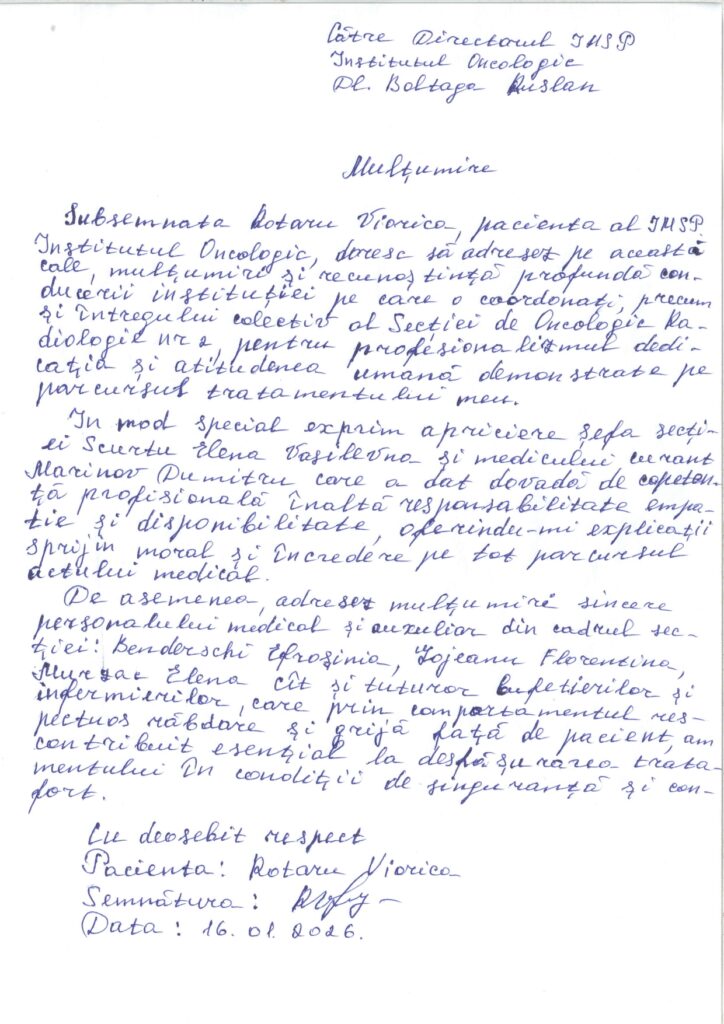 Către Directorul IMSP
Institutul Oncologic
Dl. Boltaga Ruslan
Mulțumire
Subsemnata Rotaru Viorica, pacienta al IMSP
Institutul Oncologic, doresc să adresez pe această
cale, mulțumiri și recunoștință profundă con-
ducerii instituției pe care o coordonați, precum
și întregului colectiv al Secției de Oncologie Ra-
diologie nr 2, pentru profesionalismul dedi-
cația și atitudinea umană demonstrate pe
parcursul tratamentului meu.
In mod special exprim apriciere șefa secți-
ei Scurtu Elena Vasilevna și medicului curant
Marinov Dumitru care a dat dovadă de copeten-
ță profisională înaltă responsabilitate empa-
tie și disponibilitate, oferindu-mi explicații
sprijin moral și încredere pe tot parcursul
actului medical.
De asemenea, adresez mulțumiri sincere
personalului medical și auxuliar din cadrul sec-
ției: Benderschi Efrosinia, Jojeanu Florentina,
Murzac Elena cît și tuturor bufetierilor și
infermierilor, care prin comportamentul res-
pectuos răbdare și grijă față de pacient, am
contribuit esențial la desfășurarea trata-
mentului în condiții de singuranță și con-
fort.
Cu deosebit respect
Pacienta: Rotaru Viorica
Semnătura:
Data: 16.01.2026.